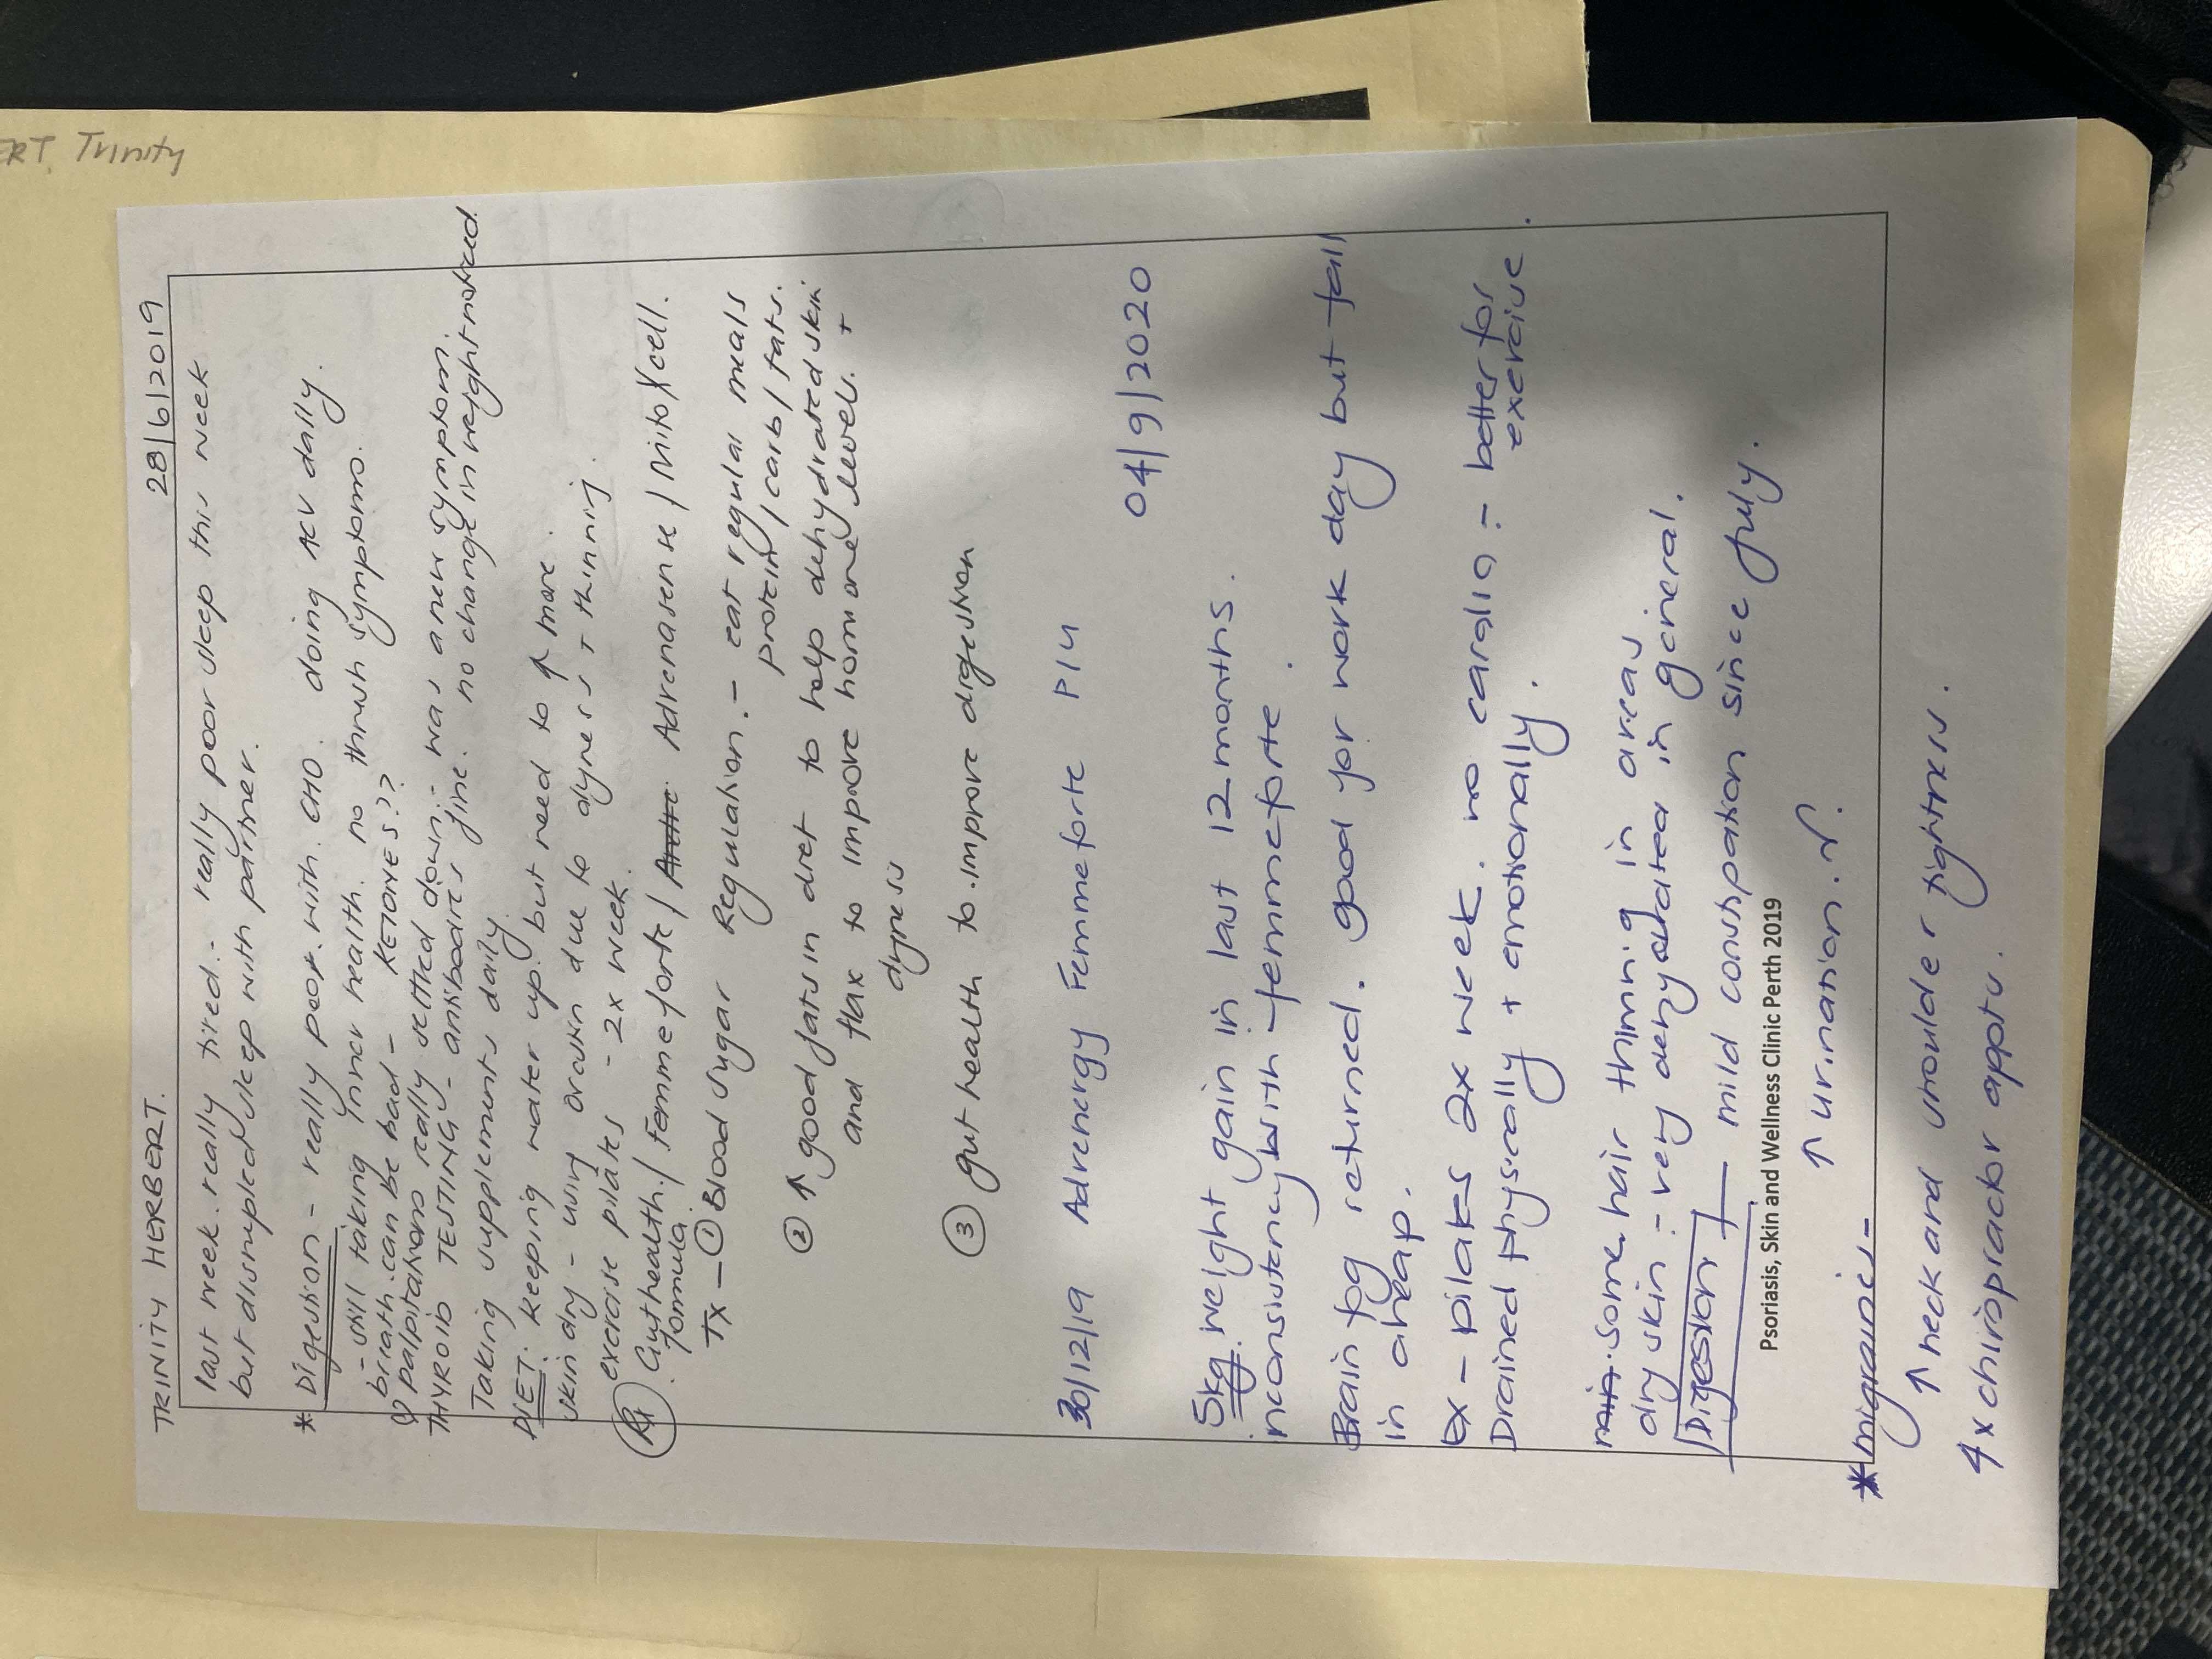 ERT, Trinity
TRINITY HERBERT. 28/6/2019
last week really tired - really poor sleep this week
but disrupted sleep with partner.
* Digestion - really poor with CHO. doing ACV daily.
- still taking inner health. no thrush symptoms.
breath can be bad - KETONES??
palpitations really settled down - was a new symptom.
THYROID TESTING - antibodies fine. no change in weight noticed.
Taking supplements daily
DIET: keeping water up. but need to ↑ more.
skin dry - using due to dryness + thinning.
exercise pilates - 2x week.
Rx Guthealth / Femmeforte / Adrenasense / MitoXcell.
formula.
Tx - ① Blood Sugar Regulation. - eat regular meals
protein / carb / fats.
② ↑ good fats in diet to help dehydrated skin +
and flax to improve hormone levels.
dryness
③ gut health to improve digestion
30/12/19 Adrenergy Femmeforte P14
04/9/2020
5kg. weight gain in last 12 months.
inconsistency with femmeforte.
Brain fog returned. good for work day but fall
in a heap.
Ex - pilates 2x week. no cardio - better for
exercise.
Drained physically + emotionally.
some hair thinning in areas
dry skin - very dehydrated in general.
Digestion - mild constipation since July.
Psoriasis, Skin and Wellness Clinic Perth 2019
↑ urination.
* migraines -
↑ neck and shoulder tightness.
4 x chiropractor appts.